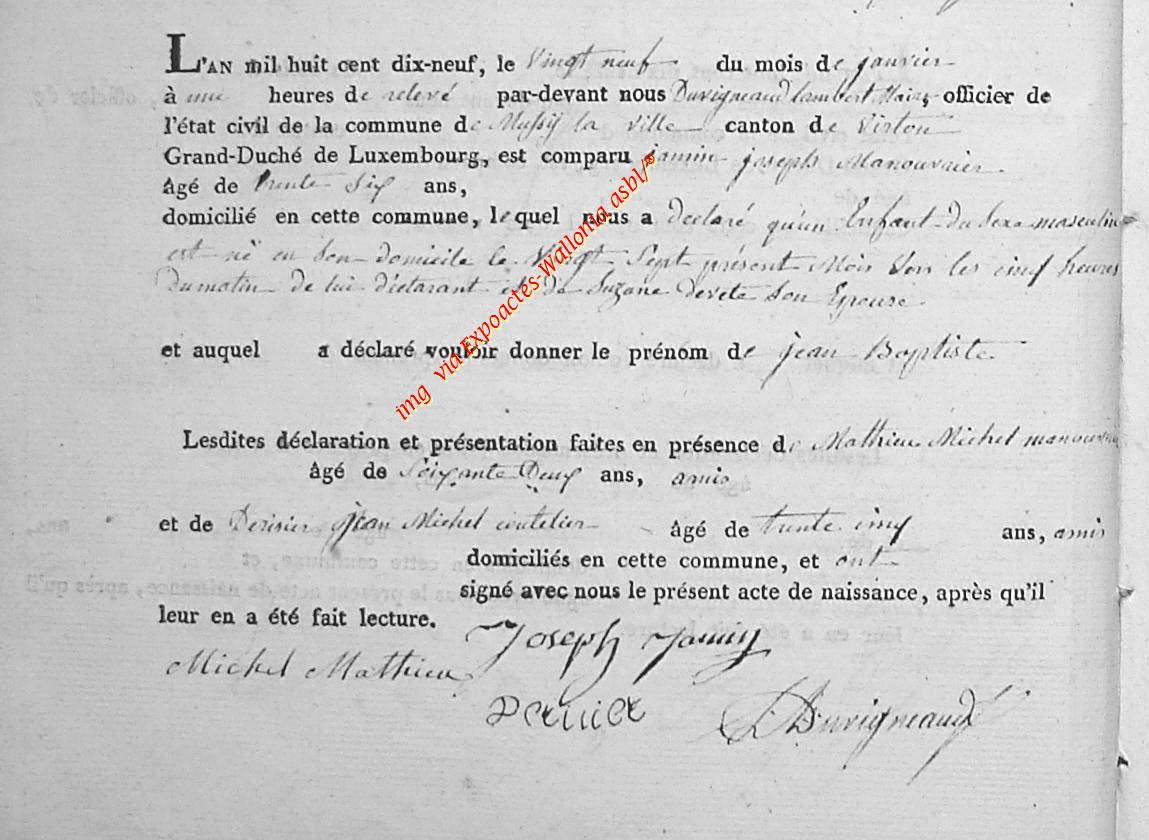 L'AN mil huit cent dix-neuf, le Vingt neuf du mois de janvier
à une heures de relevé par-devant nous Duvigneaud Lambert Maire, officier de
l'état civil de la commune de Mussy la Ville canton de Virton
Grand-Duché de Luxembourg, est comparu jamin joseph Manouvrier
âgé de trente Six ans,
domicilié en cette commune, lequel nous a déclaré qu'un Enfant du Sexe masculin
est né en son domicile le Vingt Sept présent Mois vers les cinq heures
du matin de lui déclarant et de Suzane Devete Son Epouse
et auquel a déclaré vouloir donner le prénom de jean Baptiste
Lesdites déclaration et présentation faites en présence de Mathieu Michel manouvrier
âgé de Soixante Deux ans, amis
et de jean Michel coutelier âgé de trente cinq ans, amis
domiciliés en cette commune, et ont
signé avec nous le présent acte de naissance, après qu'il
leur en a été fait lecture.
Joseph Jamin
Michel Mathieu
L Duvigneaud
img via Expoactes-Wallonia asbl/®